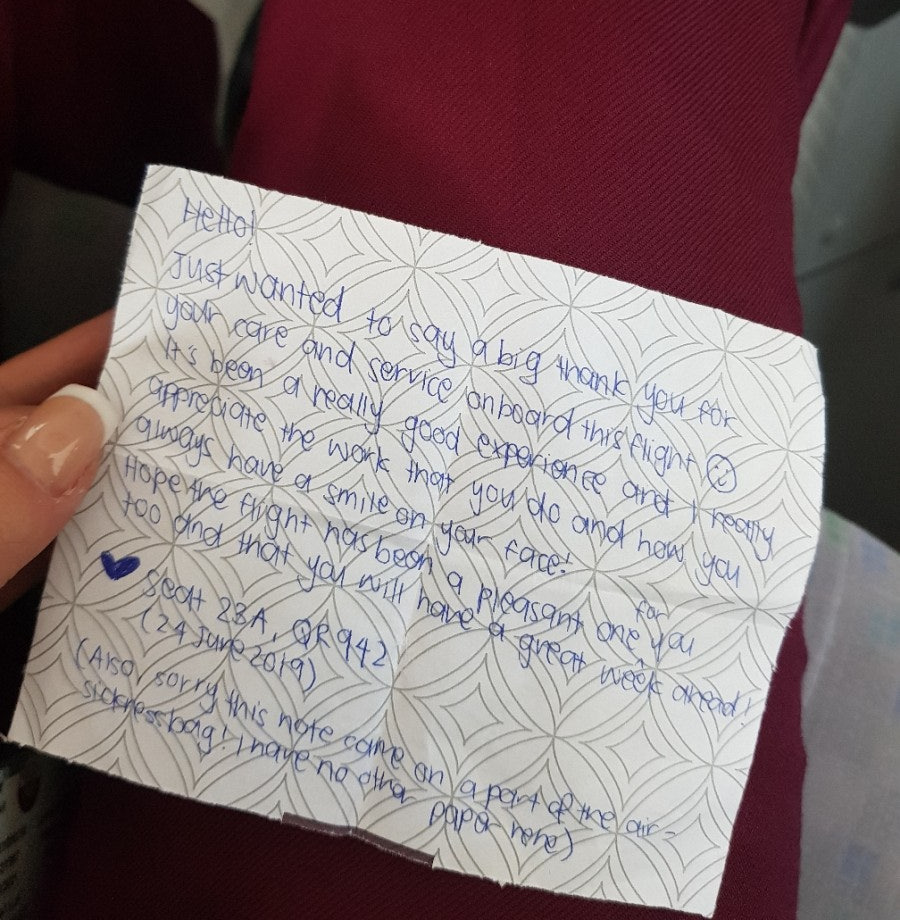 Hello!
Just wanted to say a big thank you for
your care and service onboard this flight ☺
It's been a really good experience and I really
appreciate the work that you do and how you
always have a smile on your face!
Hope the flight has been a pleasant one for you
too and that you will have a great week ahead!
♥ Seat 23A, QR942
(24 June 2019)
(Also, sorry this note came on a part of the air-
sickness bag! I have no other
paper here)